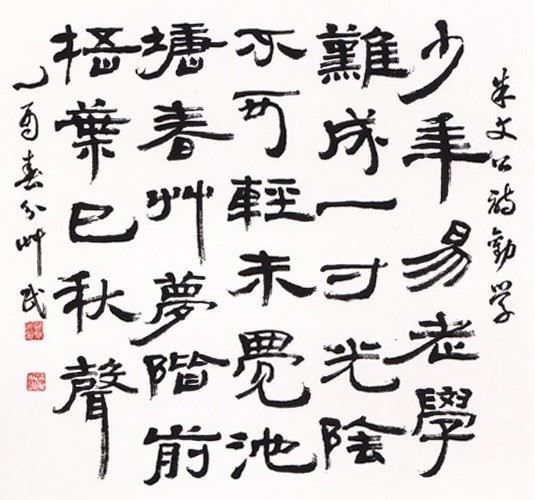 朱文公詩勸学
少年易老學
難成一寸光陰
不可輕未覺池
塘春艸夢階前
梧葉已秋聲
乙酉春分艸民